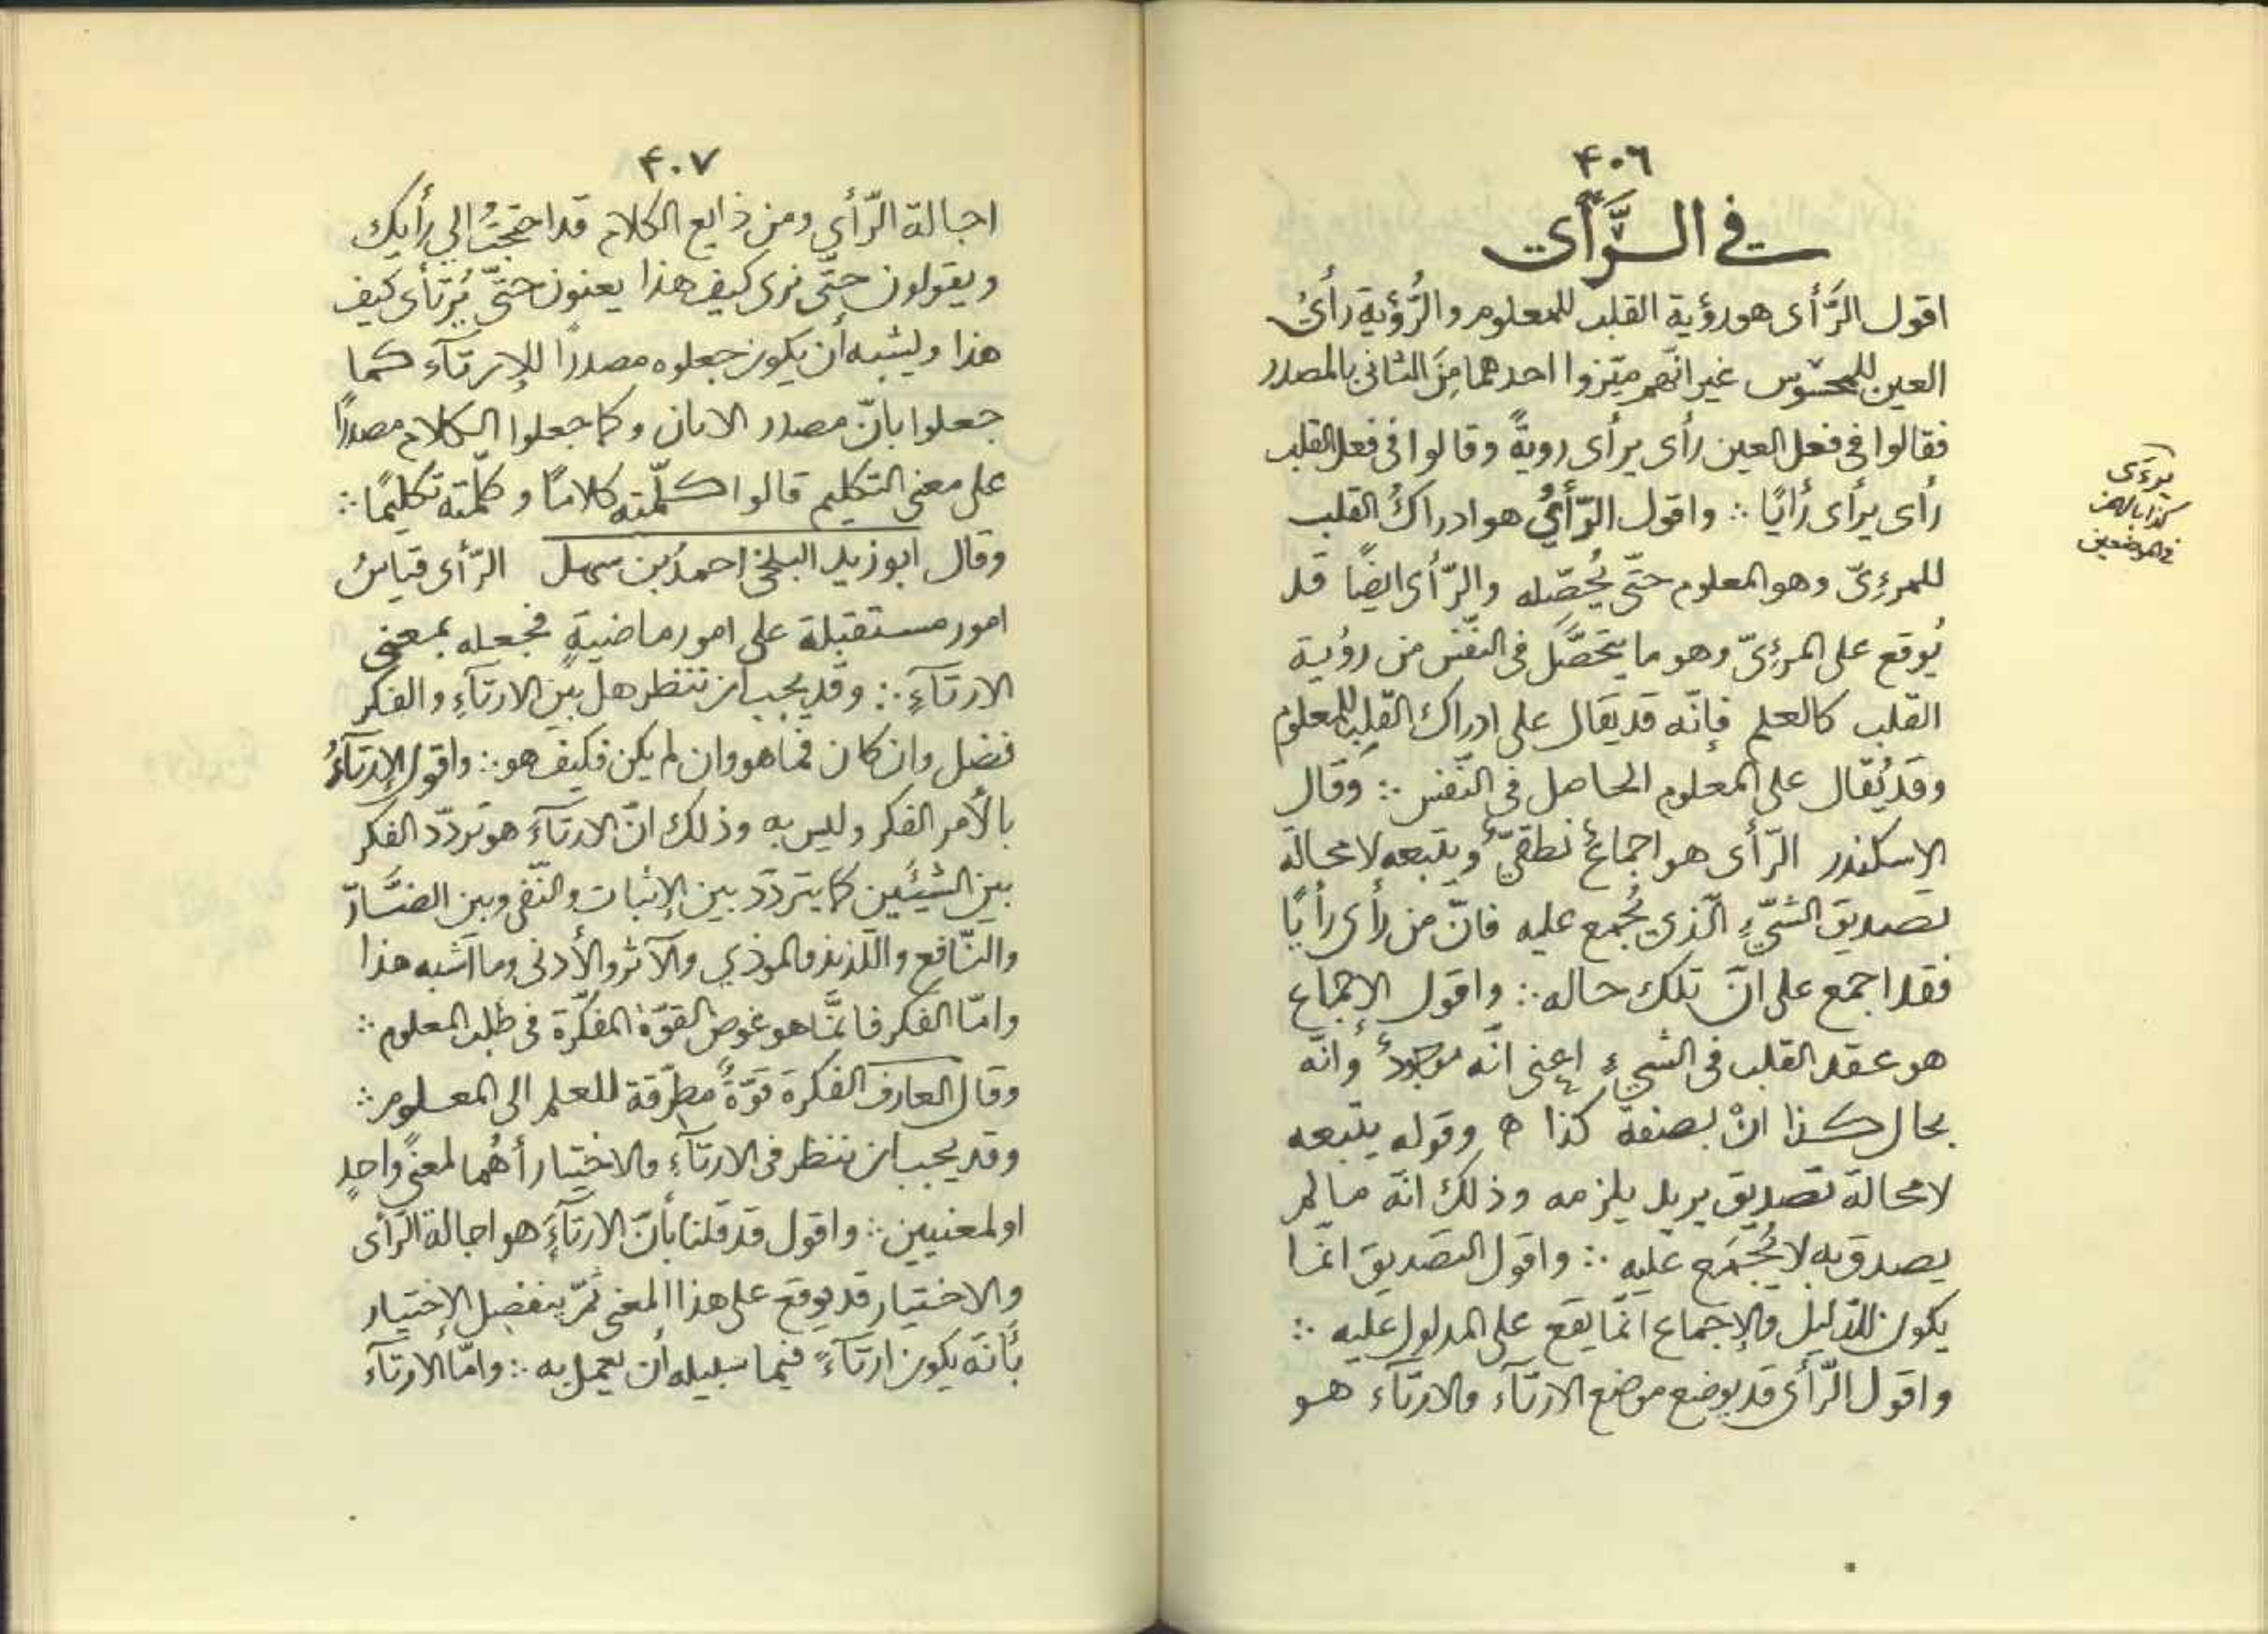 ٤٠٦
في الرَّأي
اقول الرَّأى هو رؤية القلب للمعلوم والرُّؤية رأىُ
العين للمحسوس غير انّهم ميّزوا احدهما مِنَ الثانى بالمصدر
فقالوا فى فعل العين رأى يرأى رويةً وقالوا فى فعل القلب
رأى يرأى رأيًا ∴ واقول الرّأىُ هو ادراكُ القلب
للمرءِىّ وهو المعلوم حتّى يُحصّله والرّأى ايضًا قد
يُوقع على المرءِىّ وهو ما يتحصَّل فى النّفس من رؤية
القلب كالعلم فإنّه قد يقال على ادراك القلب للمعلوم
وقد يُقال على المعلوم الحاصل فى النّفس ∴ وقال
الاسكندر الرّأى هو اجماعٌ نطقىٌّ ويتبعه لا محالة
تصديق الشّىءِ الّذي يُجمع عليه فانّ من رأى رأيًا
فقد اجمع على انّ تلك حاله ∴ واقول الاجماع
هو عقد القلب فى الشىءِ اعنى انّه موجودٌ وانّه
بحال كذا انْ بصفة كذا ه وقوله يتبعه
لا محالة تصديق يريد يلزمه وذلك انّه ما لم
يصدق به لا يُجْمَع عليه ∴ واقول التصديق انّما
يكون للدّليل والإجماع انّما يقع على المدلول عليه ∴
واقول الرّأى قد يوضع موضع الارتآء والارتآء هو
يرءَى
كذا بالهمز
فى الموضعين
٤٠٧
اجالة الرّأي ومن ذايع الكلام قد احتجتُ الي رأيك
ويقولون حتّى نرى كيف هذا يعنون حتّى نُرتأى كيف
هذا ويشبه أن يكون جعلوه مصدرًا للإرتآء كما
جعلوا بانّ مصدر الابان وكما جعلوا الكلام مصدرًا
على معنى التكليم قالوا كلّمته كلامًا وكلّمته تكليمًا ∴
وقال ابو زيد البلخى احمدُ بن سهل الرّأى قياسُ
امور مستقبلة على امور ماضيةٍ فجعله بمعنى
الارتآءِ ∴ وقد يجب ان ننظر هل بين الارتآءِ والفكر
فضل وان كان فما هو وان لم يكن فكيف هو ∴ واقول الإرتآءُ
بالأمر الفكر وليس به وذلك انّ الارتآءَ هو تردّد الفكر
بين الشيئَين كما يتردّد بين الإثبات والنّفى وبين الضّارّ
والنّافع واللّذيذ والموذي والآثر والأدنى وما اشبه هذا
وامّا الفكر فانّما هو غوص القوّة المفكّرة فى طلب المعلوم ∴
وقال العارف الفكرة قوّةٌ مطرّقة للعلم الى المعلوم ∴
وقد يجب ان ننظر فى الارتآءِ والاختيار أهُما لمعنًى واحدٍ
او لمعنيين ∴ واقول قد قلنا بأنّ الارتآءَ هو اجالة الرّأى
والاختيار قد يوقع على هذا المعنى ثمّ ينفصل الإختيار
بأنّه يكون ارتآءً فيما سبيله أن يعمل به ∴ وامّا الارتآء